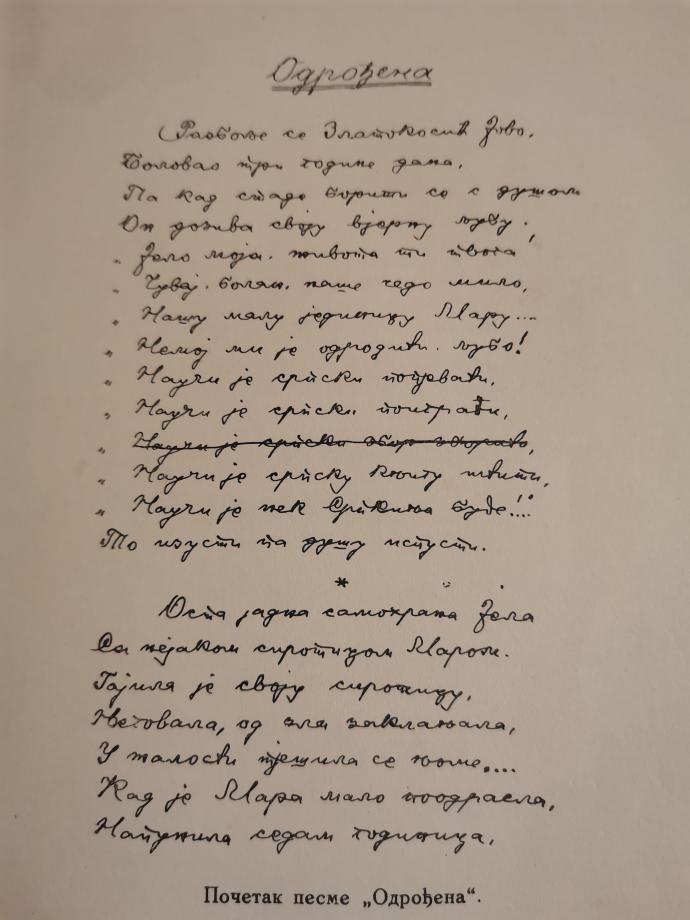 Одрођена
Разбоље се Златокосић Јово,
Боловао три године дана,
Па кад стаде борити се с душом
Он дозива своју вјерну љубу.
„ Јело моја, живота ти твога
„ Чувај, болан, наше чедо мило,
„ Нашу малу јединицу Мару...
„ Немој ми је одродити, љубо!
„ Научи је српски попјевати,
„ Научи је српски поиграти,
„ Научи је српски
„ Научи је српску књигу штити,
„ Научи је нек Српкиња буде!..."
То изусти па душу испусти.
*
Оста јадна самохрана Јела
Са нејаком сиротицом Маром.
Гајила је своју сиротицу,
Његовала, од зла заклањала,
У жалости тјешила се њоме....
Кад је Мара мало поодрасла,
Напунила седам годиница,
Почетак песме „Одрођена“.